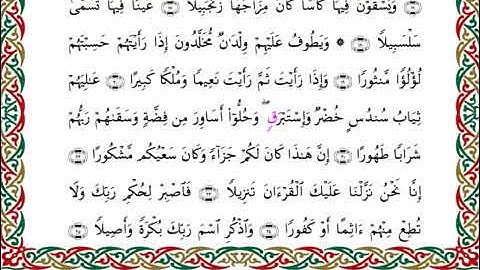 ۝١٦ وَيُسْقَوْنَ فِيهَا كَأْسًا كَانَ مِزَاجُهَا زَنجَبِيلًا ۝١٧ عَيْنًا فِيهَا تُسَمَّىٰ
سَلْسَبِيلًا ۝١٨ ۞ وَيَطُوفُ عَلَيْهِمْ وِلْدَٰنٌ مُّخَلَّدُونَ إِذَا رَأَيْتَهُمْ حَسِبْتَهُمْ
لُؤْلُؤًا مَّنثُورًا ۝١٩ وَإِذَا رَأَيْتَ ثَمَّ رَأَيْتَ نَعِيمًا وَمُلْكًا كَبِيرًا ۝٢٠ عَٰلِيَهُمْ
ثِيَابُ سُندُسٍ خُضْرٌ وَإِسْتَبْرَقٌ ۖ وَحُلُّوٓا۟ أَسَاوِرَ مِن فِضَّةٍ وَسَقَىٰهُمْ رَبُّهُمْ
شَرَابًا طَهُورًا ۝٢١ إِنَّ هَٰذَا كَانَ لَكُمْ جَزَآءً وَكَانَ سَعْيُكُم مَّشْكُورًا ۝٢٢
إِنَّا نَحْنُ نَزَّلْنَا عَلَيْكَ ٱلْقُرْءَانَ تَنزِيلًا ۝٢٣ فَٱصْبِرْ لِحُكْمِ رَبِّكَ وَلَا
تُطِعْ مِنْهُمْ ءَاثِمًا أَوْ كَفُورًا ۝٢٤ وَٱذْكُرِ ٱسْمَ رَبِّكَ بُكْرَةً وَأَصِيلًا ۝٢٥